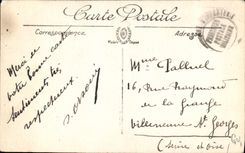 Carte Postale
Correspondance
Adresse
Merci de
votre bonne carte
Sentiments très
respectueux
Mme Palluel
16, Rue Raymond
de la Grange
Villeneuve St Georges
(Seine et Oise)